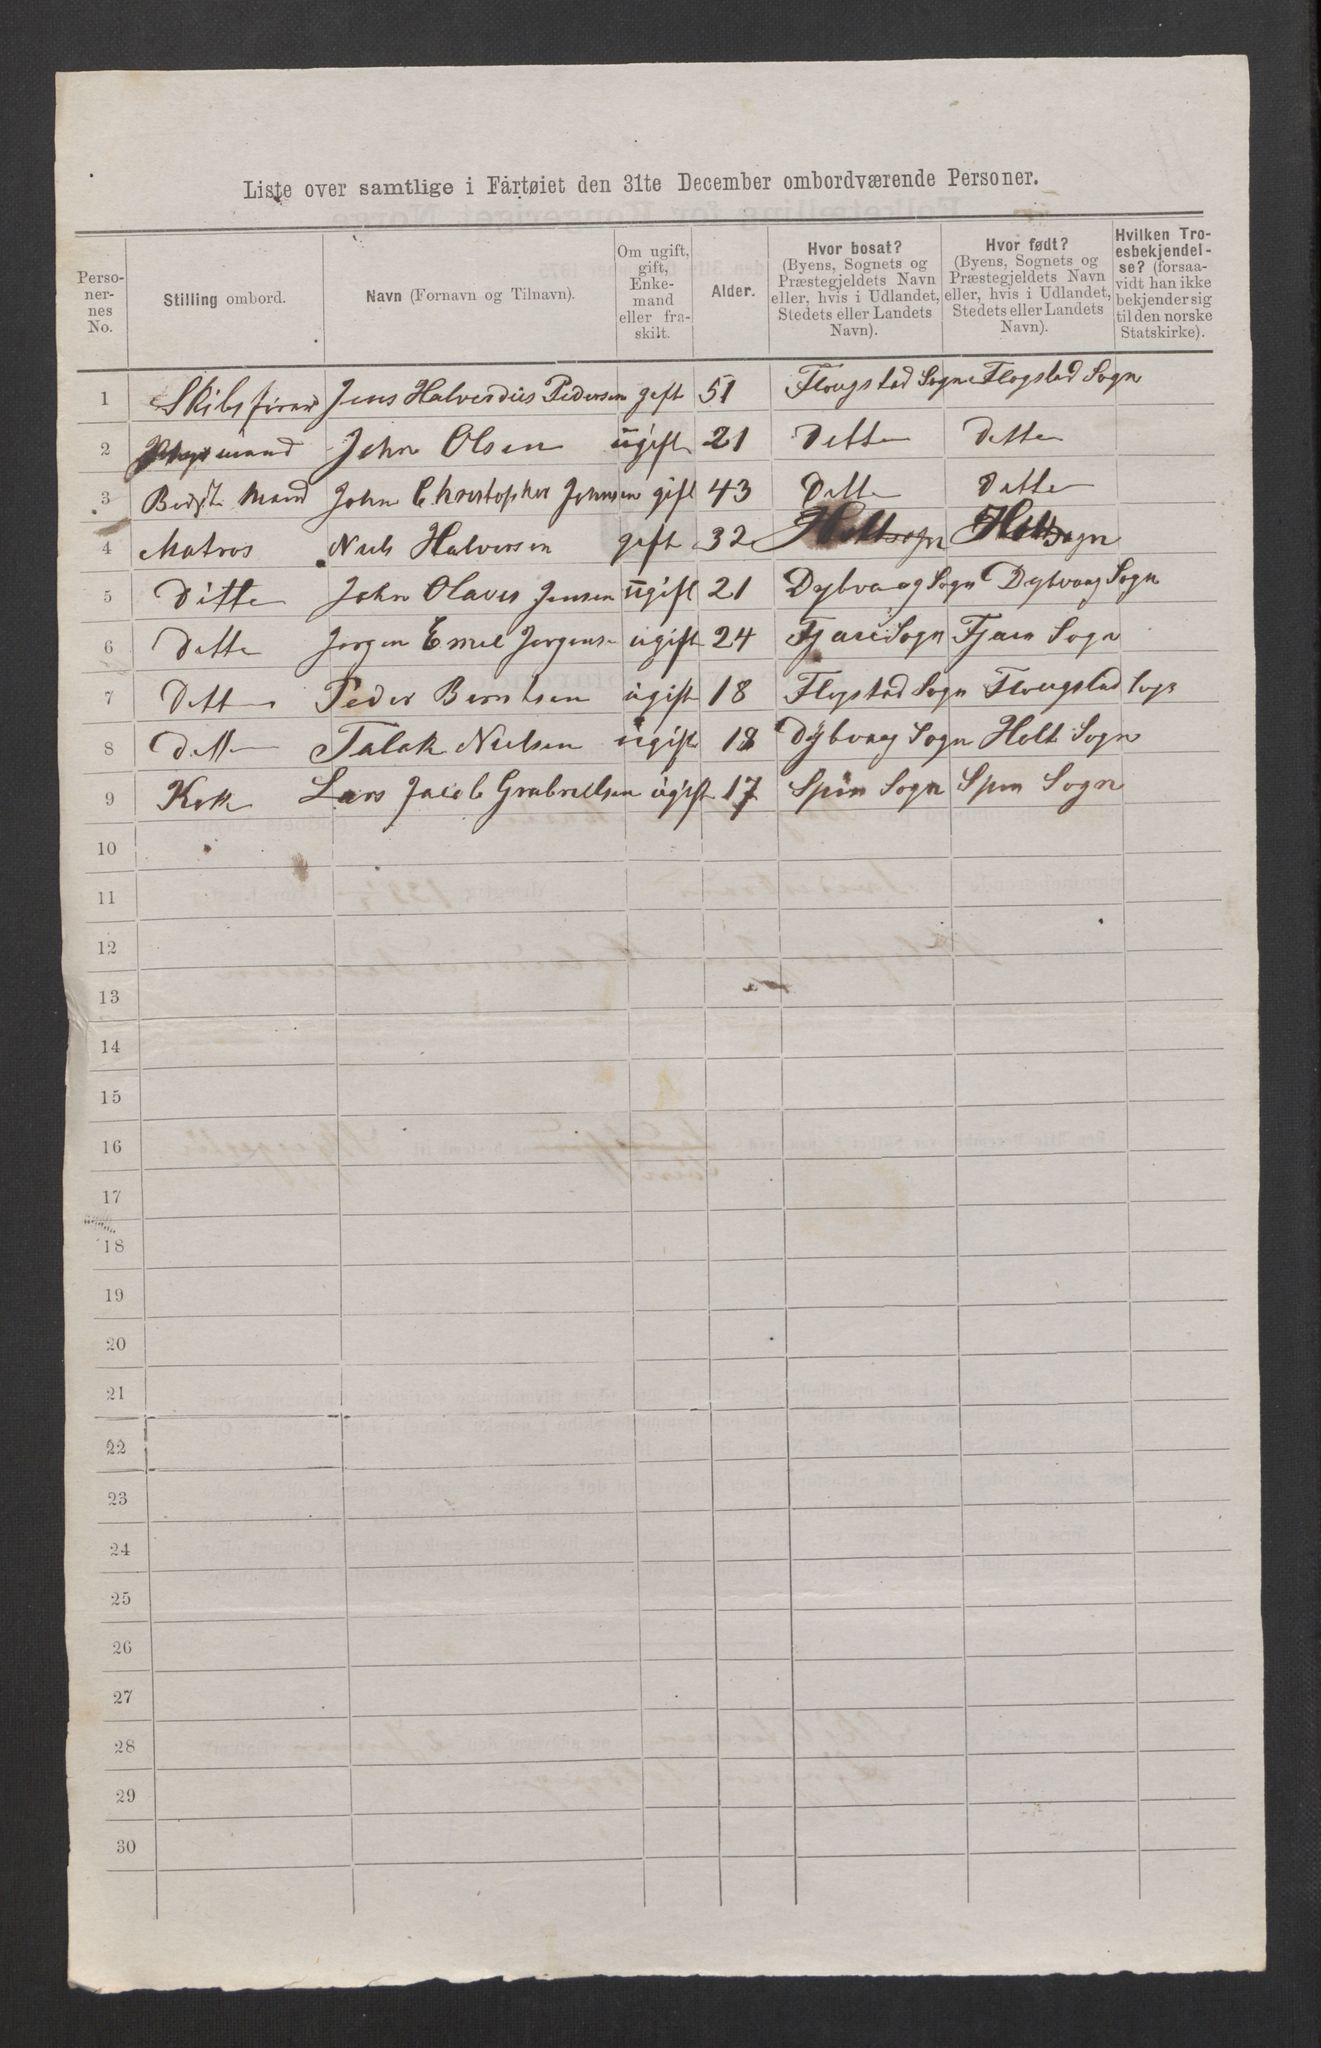 Liste over samtlige i Fartøiet den 31te December ombordværende Personer.
Personernes No. | Stilling ombord. | Navn (Fornavn og Tilnavn). | Om ugift, gift, Enkemand eller fraskilt. | Alder. | Hvor bosat? (Byens, Sognets og Præstegjeldets Navn eller, hvis i Udlandet, Stedets eller Landets Navn). | Hvor født? (Byens, Sognets og Præstegjeldets Navn eller, hvis i Udlandet, Stedets eller Landets Navn). | Hvilken Troesbekjendelse? (forsaavidt han ikke bekjender sig til den norske Statskirke).
1 Skibsfører Jens Halverdus Pedersen gift 51 Flougstad Sogn Flogstad Sogn
2 John Olsen ugift 21 Ditto Ditto
3 Bedste Mand John Christopher Johnsen gift 43 Ditto Ditto
4 Matros Niels Halversen gift 32 Holt sogn Holt sogn
5 Ditto John Olaves Jensen ugift 21 Dybvaag Sogn Dybvaag Sogn
6 Ditto Jørgen Emil Jørgens ugift 24 Fjære Sogn Fjære Sogn
7 Ditto Peder Berntsen ugift 18 Flogstad Sogn Flougstad Sogn
8 Ditto Talak Nielsen ugift 18 Dybvaag Sogn Holt Sogn
9 Kok Lars Jacob Grabrielsen ugift 17 Spin Sogn Spin Sogn
10
11
12
13
14
15
16
17
18
19
20
21
22
23
24
25
26
27
28
29
30